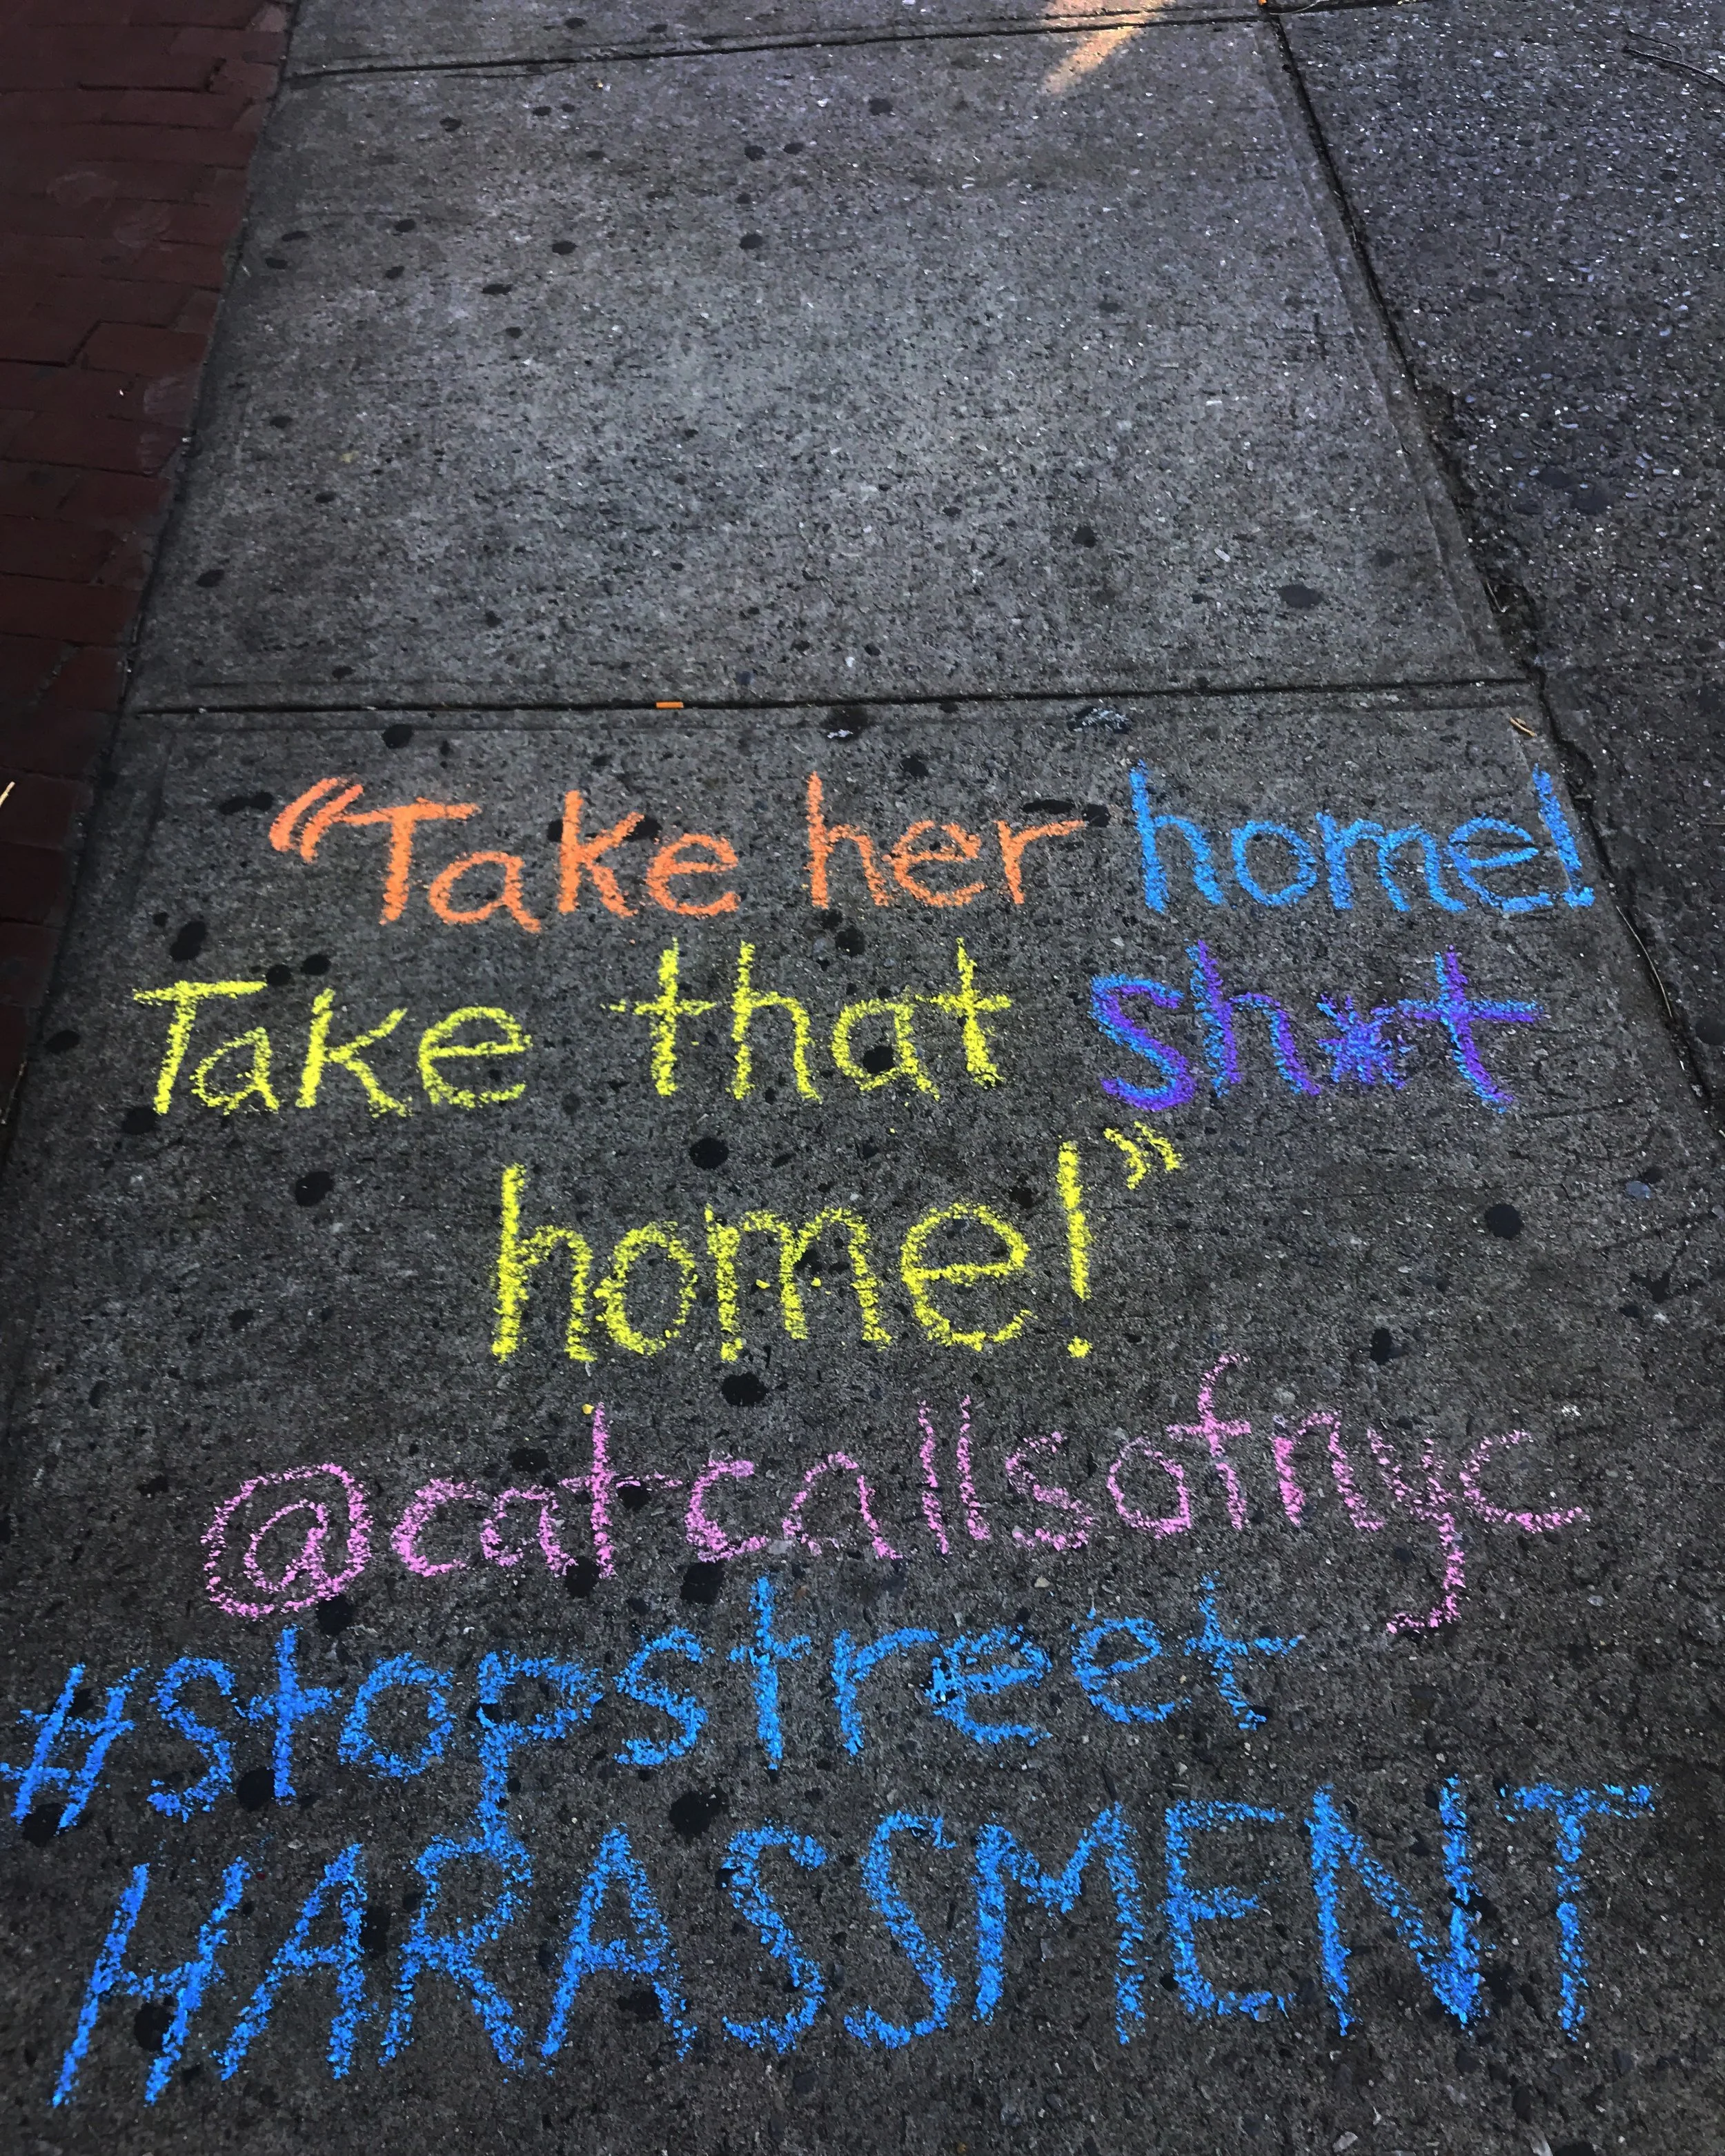 “Take her home!
Take that sh*t
home!”
@catcallsofnyc
#stopstreet
HARASSMENT